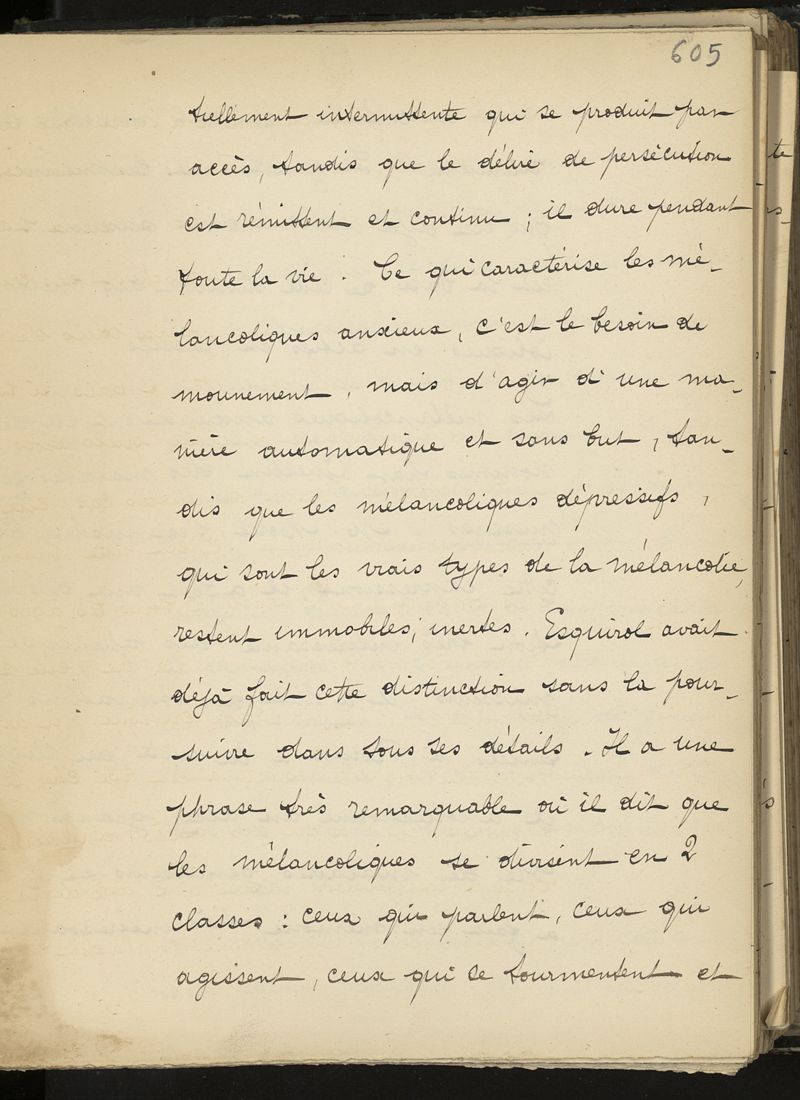 605
tiellement intermittente qui se produit par
accès, tandis que le délire de persécution
est rémittent et continu ; il dure pendant
toute la vie. Ce qui caractérise les mé-
lancoliques anxieux, c'est le besoin de
mouvement, mais d'agir d'une ma-
nière automatique et sans but, tan-
dis que les mélancoliques dépressifs,
qui sont les vrais types de la mélancolie,
restent immobiles, inertes. Esquirol avait
déjà fait cette distinction sans la pour-
suivre dans tous ses détails. Il a une
phrase très remarquable où il dit que
les mélancoliques se divisent en 2
classes : ceux qui parlent, ceux qui
agissent, ceux qui se tourmentent et